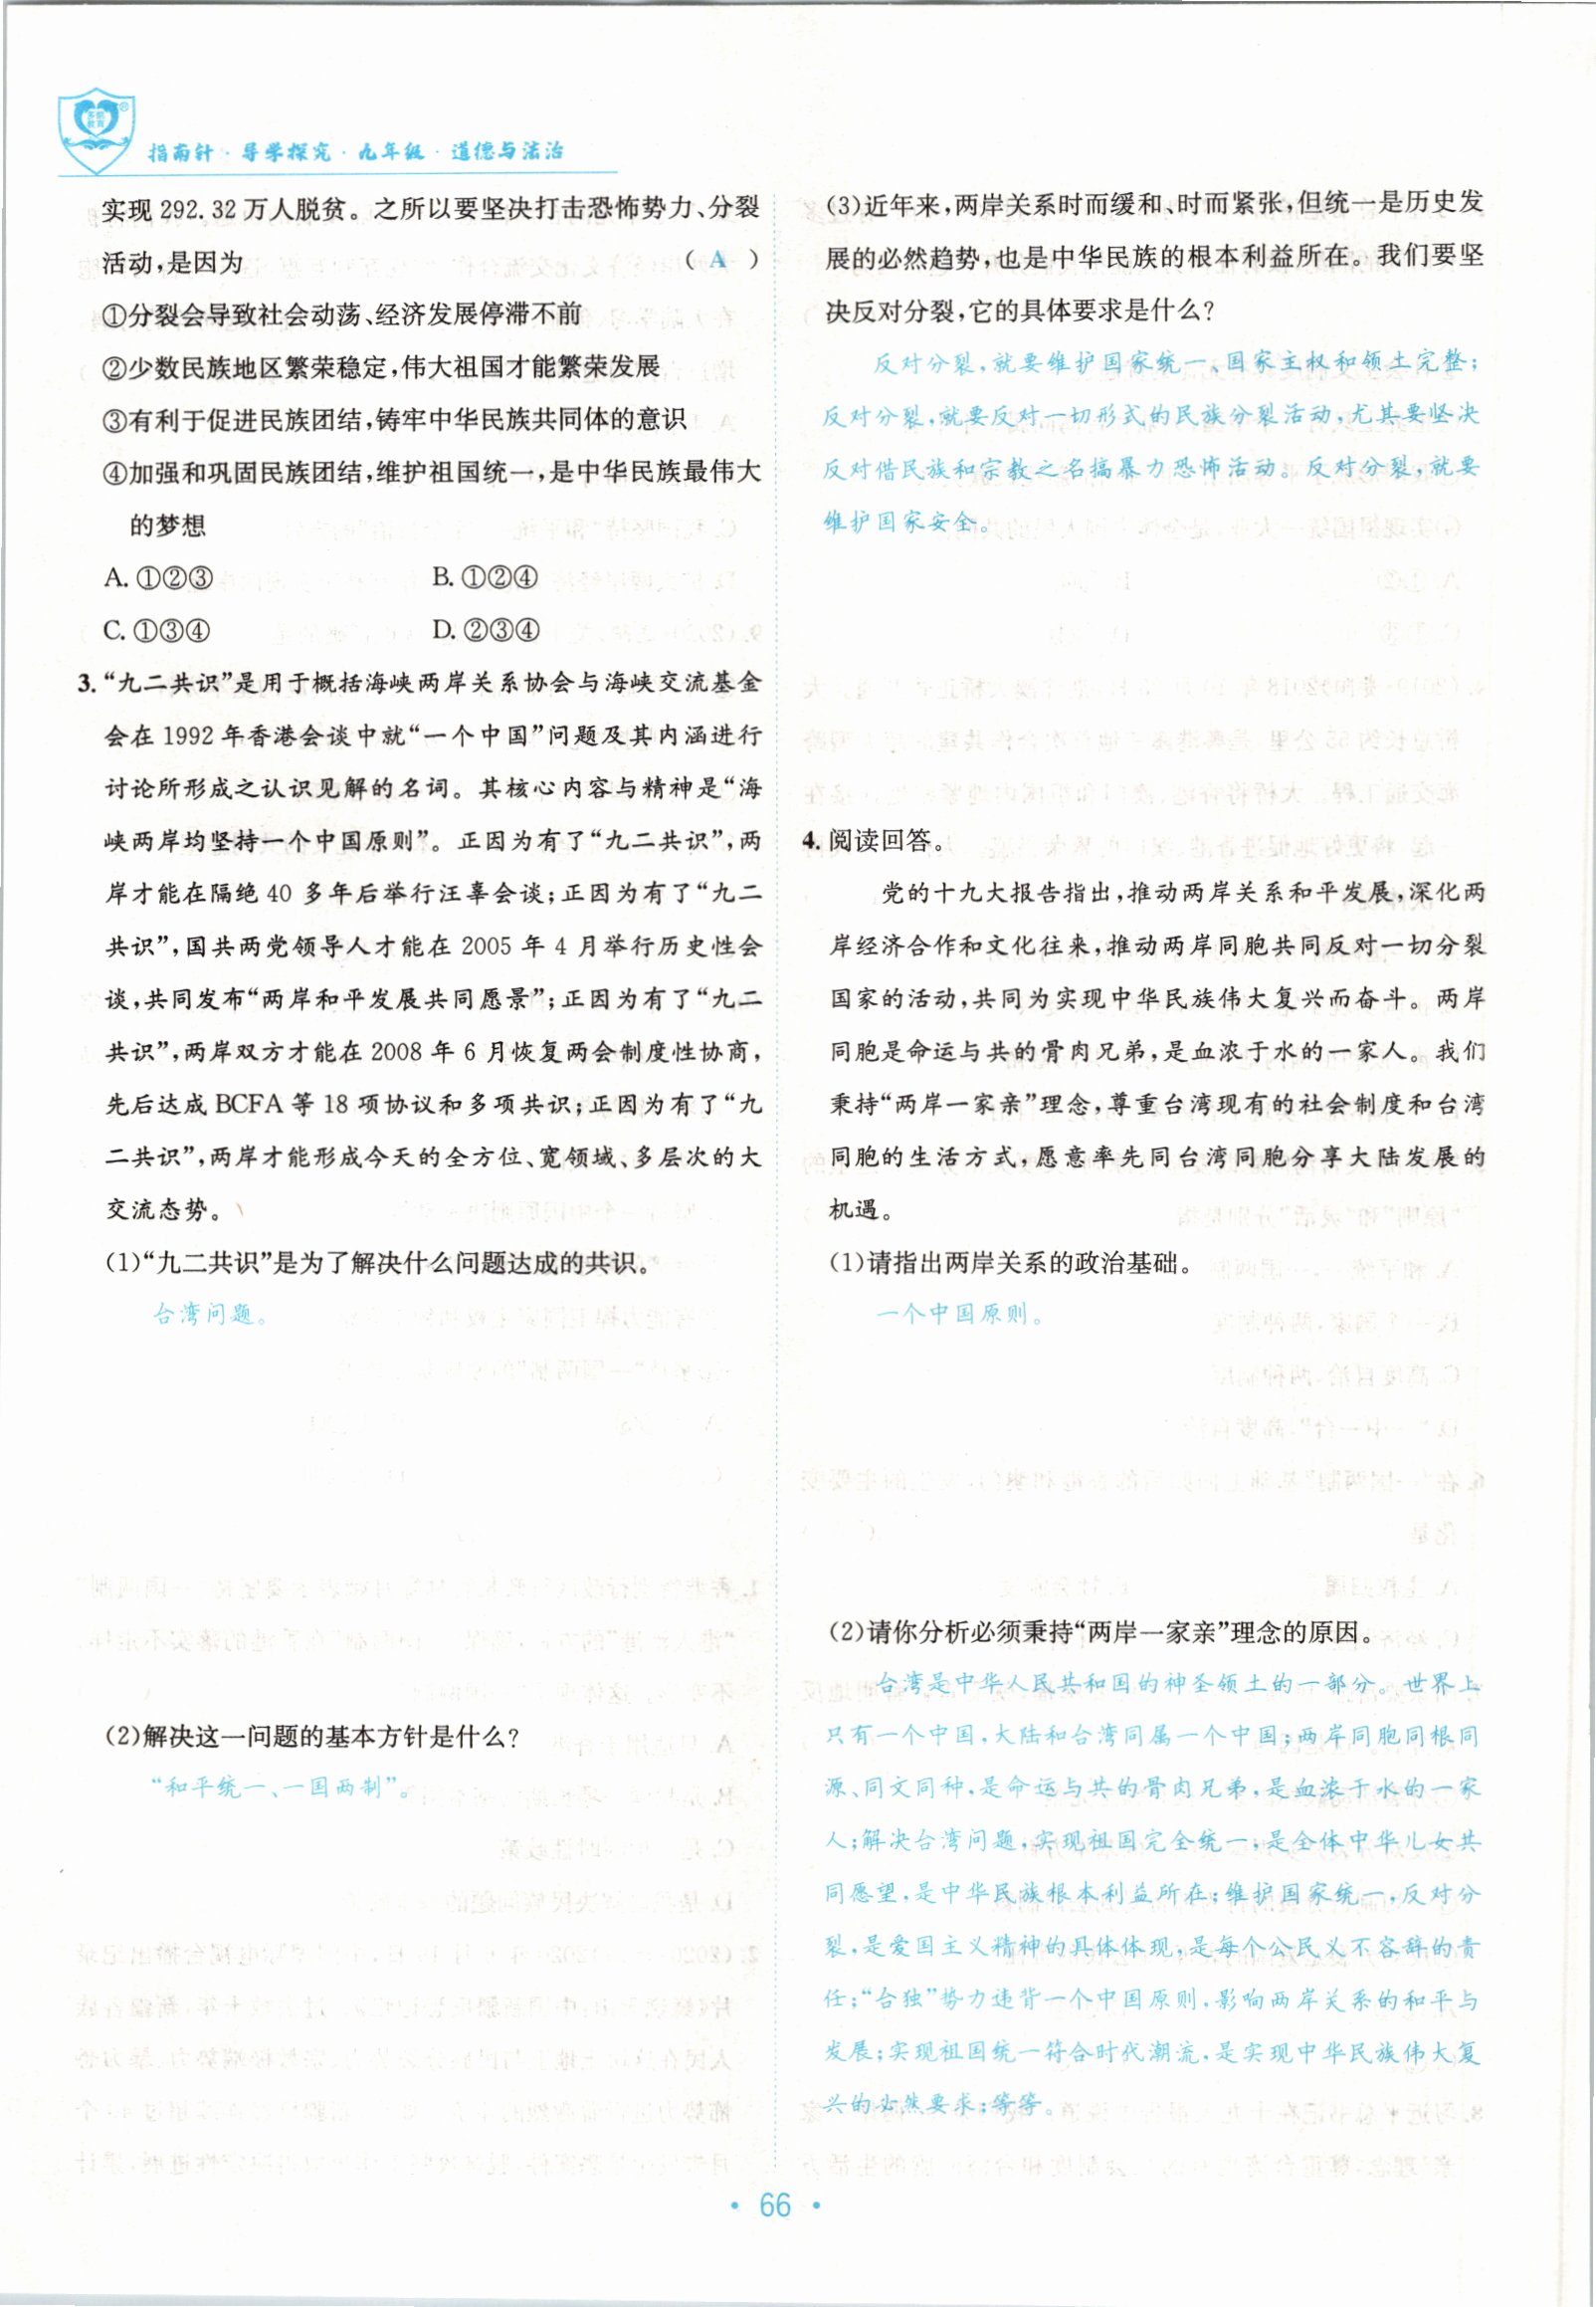 指南针·导学探究·九年级·道德与法治
实现292.32万人脱贫。之所以要坚决打击恐怖势力、分裂
活动,是因为 ( A )
①分裂会导致社会动荡、经济发展停滞不前
②少数民族地区繁荣稳定,伟大祖国才能繁荣发展
③有利于促进民族团结,铸牢中华民族共同体的意识
④加强和巩固民族团结,维护祖国统一,是中华民族最伟大
的梦想
A. ①②③ B. ①②④
C. ①③④ D. ②③④
3. “九二共识”是用于概括海峡两岸关系协会与海峡交流基金
会在1992年香港会谈中就“一个中国”问题及其内涵进行
讨论所形成之认识见解的名词。其核心内容与精神是“海
峡两岸均坚持一个中国原则”。正因为有了“九二共识”,两
岸才能在隔绝40多年后举行汪辜会谈;正因为有了“九二
共识”,国共两党领导人才能在2005年4月举行历史性会
谈,共同发布“两岸和平发展共同愿景”;正因为有了“九二
共识”,两岸双方才能在2008年6月恢复两会制度性协商,
先后达成BCFA等18项协议和多项共识;正因为有了“九
二共识”,两岸才能形成今天的全方位、宽领域、多层次的大
交流态势。
(1)“九二共识”是为了解决什么问题达成的共识。
台湾问题。
(2)解决这一问题的基本方针是什么?
“和平统一、一国两制”。
(3)近年来,两岸关系时而缓和、时而紧张,但统一是历史发
展的必然趋势,也是中华民族的根本利益所在。我们要坚
决反对分裂,它的具体要求是什么?
反对分裂,就要维护国家统一、国家主权和领土完整;
反对分裂,就要反对一切形式的民族分裂活动,尤其要坚决
反对借民族和宗教之名搞暴力恐怖活动。反对分裂,就要
维护国家安全。
4. 阅读回答。
党的十九大报告指出,推动两岸关系和平发展,深化两
岸经济合作和文化往来,推动两岸同胞共同反对一切分裂
国家的活动,共同为实现中华民族伟大复兴而奋斗。两岸
同胞是命运与共的骨肉兄弟,是血浓于水的一家人。我们
秉持“两岸一家亲”理念,尊重台湾现有的社会制度和台湾
同胞的生活方式,愿意率先同台湾同胞分享大陆发展的
机遇。
(1)请指出两岸关系的政治基础。
一个中国原则。
(2)请你分析必须秉持“两岸一家亲”理念的原因。
台湾是中华人民共和国的神圣领土的一部分。世界上
只有一个中国,大陆和台湾同属一个中国;两岸同胞同根同
源、同文同种,是命运与共的骨肉兄弟,是血浓于水的一家
人;解决台湾问题,实现祖国完全统一,是全体中华儿女共
同愿望,是中华民族根本利益所在;维护国家统一,反对分
裂,是爱国主义精神的具体体现,是每个公民义不容辞的责
任;“台独”势力违背一个中国原则,影响两岸关系的和平与
发展;实现祖国统一符合时代潮流,是实现中华民族伟大复
兴的必然要求;等等。
· 66 ·